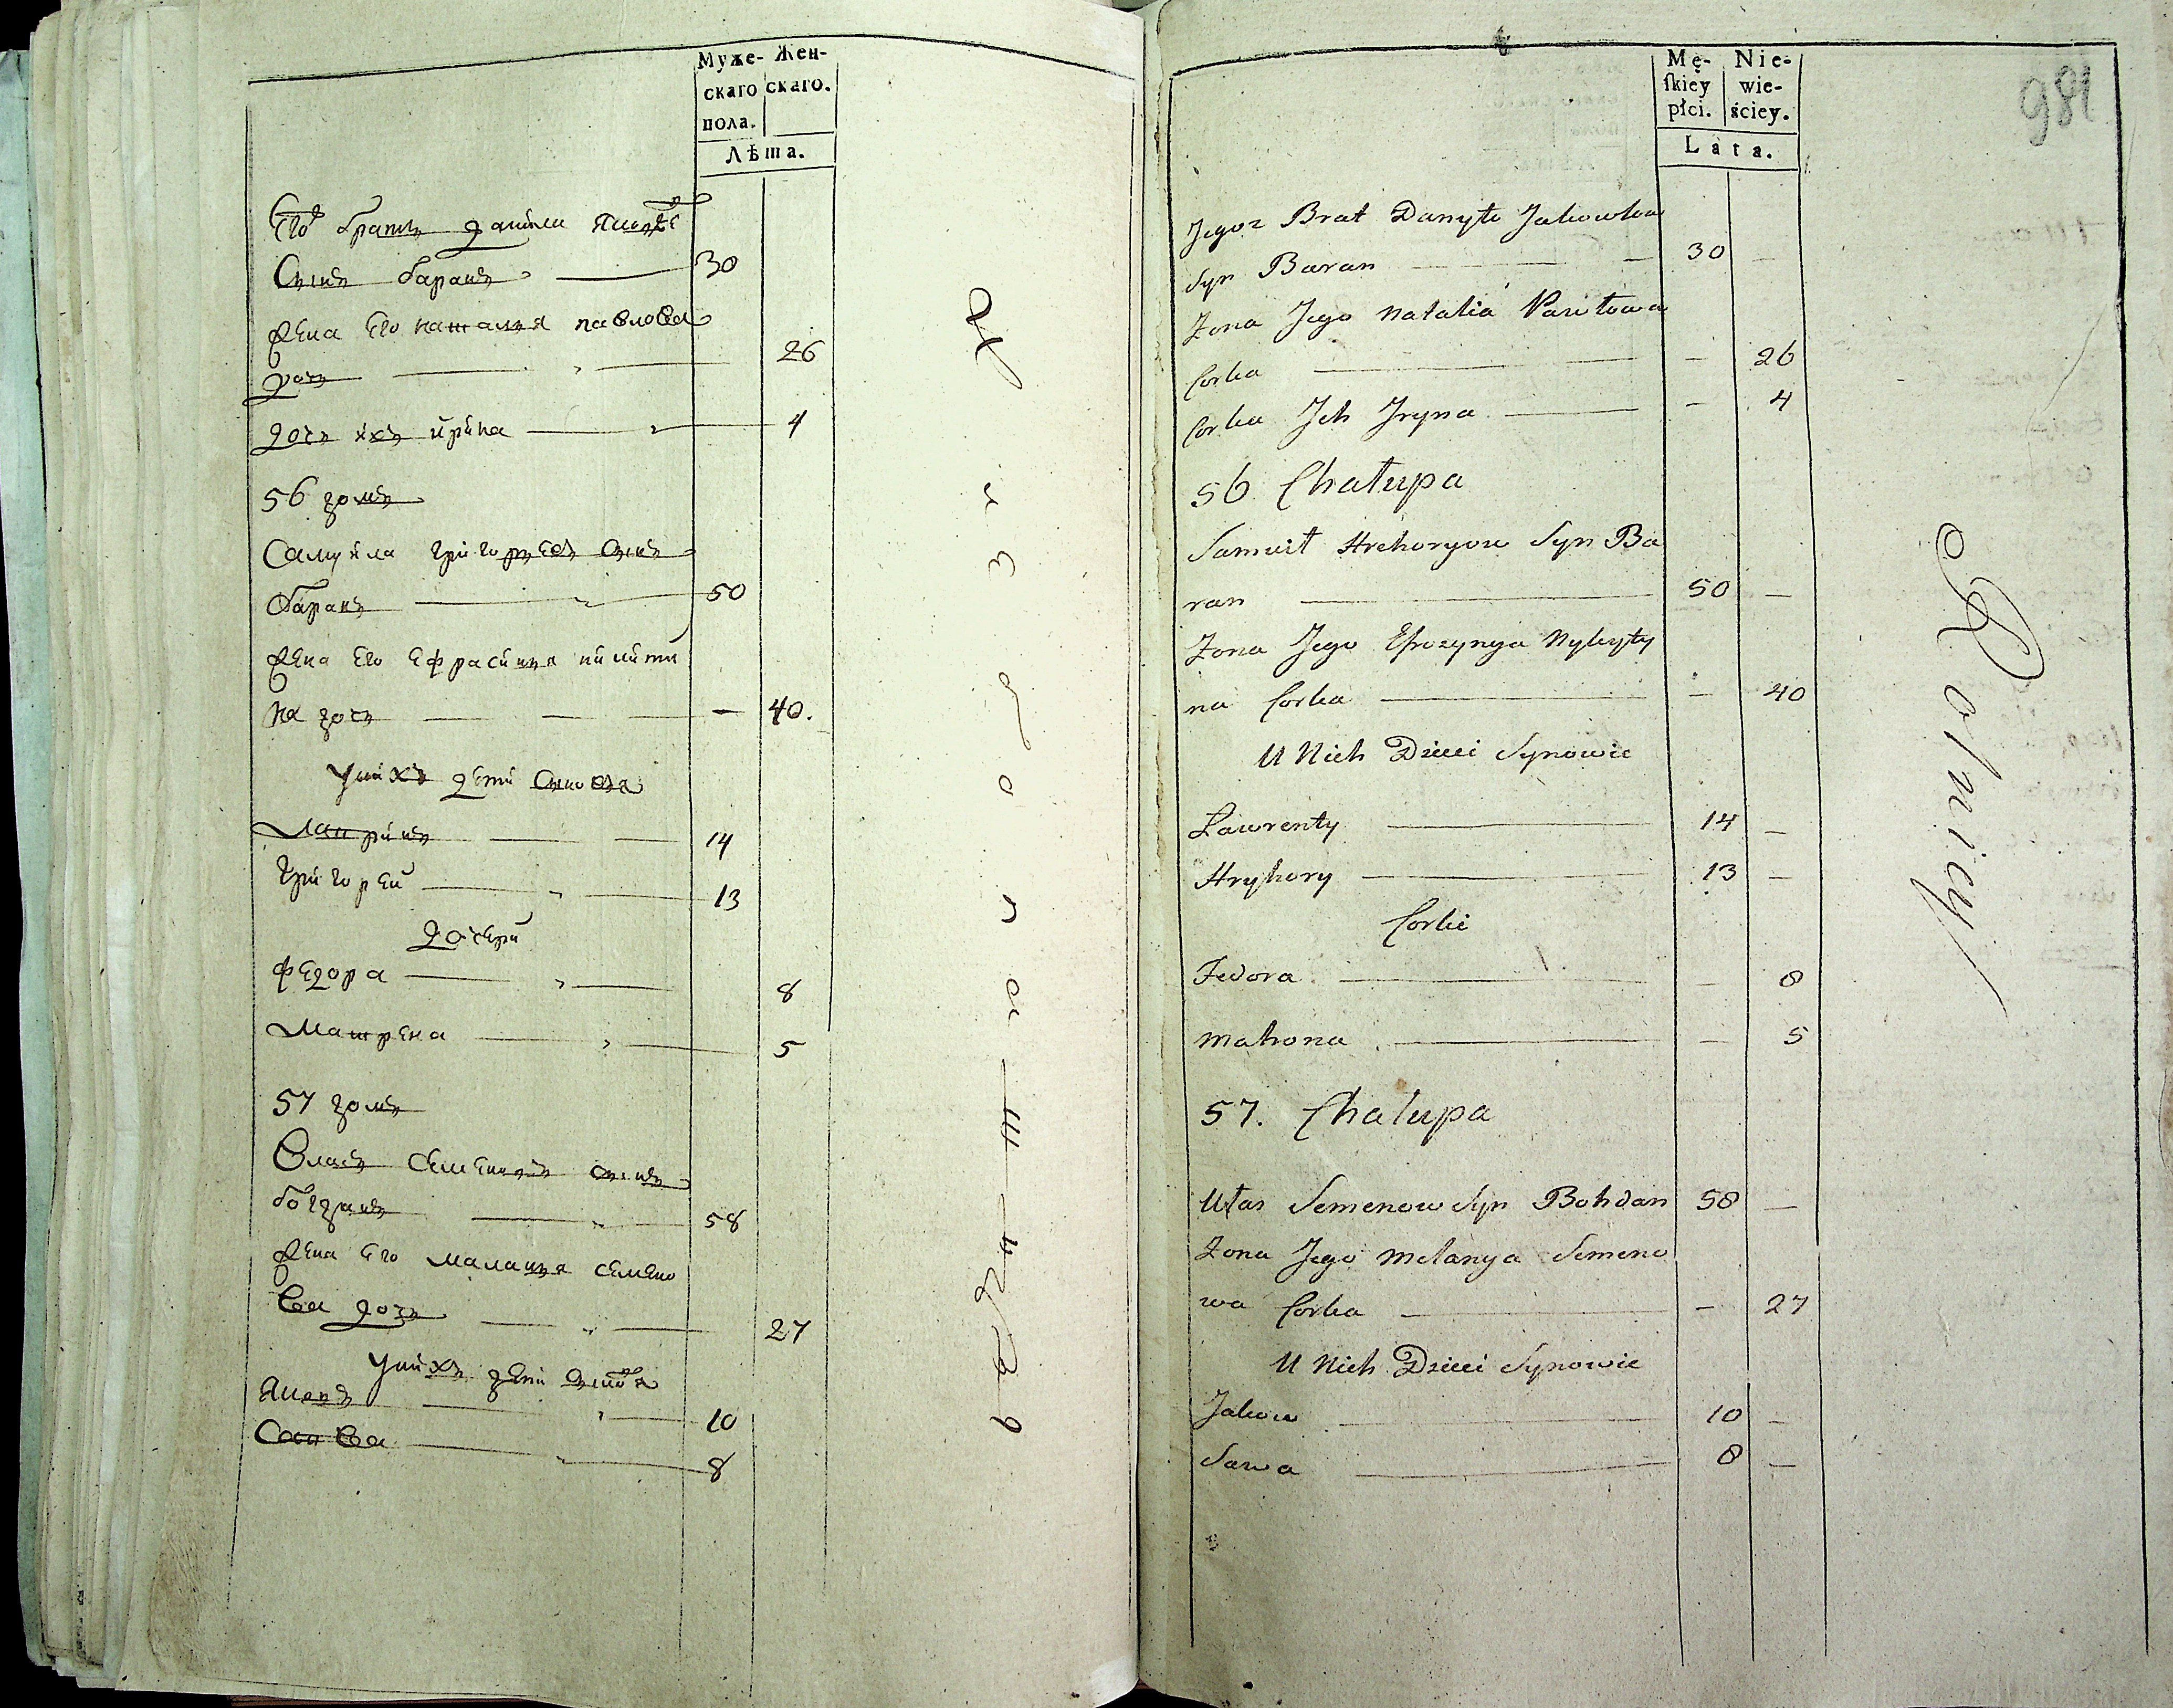 Муже- Жен-
скаго скаго.
пола.
Лѣта.
Его братъ данила
Сынъ баранъ 30
жена Его наталья павлова
дочь 26
дочь ихъ ирина 4
56 домъ
Самуйла григорьевъ Сынъ
баранъ 50
жена Его Ефрасинья никити
на дочь 40.
у нихъ дети Сыновья
Лавринъ 14
григорей 13
дочери
федора 8
Матрена 5
57 домъ
Власъ Семеновъ Сынъ
богданъ 58
жена Его маланья семено
ва дочь 27
у нихъ дети Сыновья
Яковъ 10
Савва 8
981
Mę- Nie-
ſkiey wie-
płci. ściey.
Lata.
Jegoż Brat Danyło Jakowlow
Syn Baran 30 —
Żona Jego Natalia Pawłowa
Corka — 26
Corka Jch Jryna — 4
56 Chałupa
Samuił Hrehoryow Syn Ba
ran 50 —
Żona Jego Efrozynya Nykyty
na Corka — 40
U Nich Dzieci Synowie
Ławrenty 14 —
Hryhory 13 —
Corki
Fedora — 8
Matrona — 5
57. Chałupa
Ułas Semenow Syn Bohdan 58 —
Żona Jego Melanya Semeno
wa Corka — 27
U Nich Dzieci Synowie
Jakow 10 —
Sawa 8 —
Rolnicy